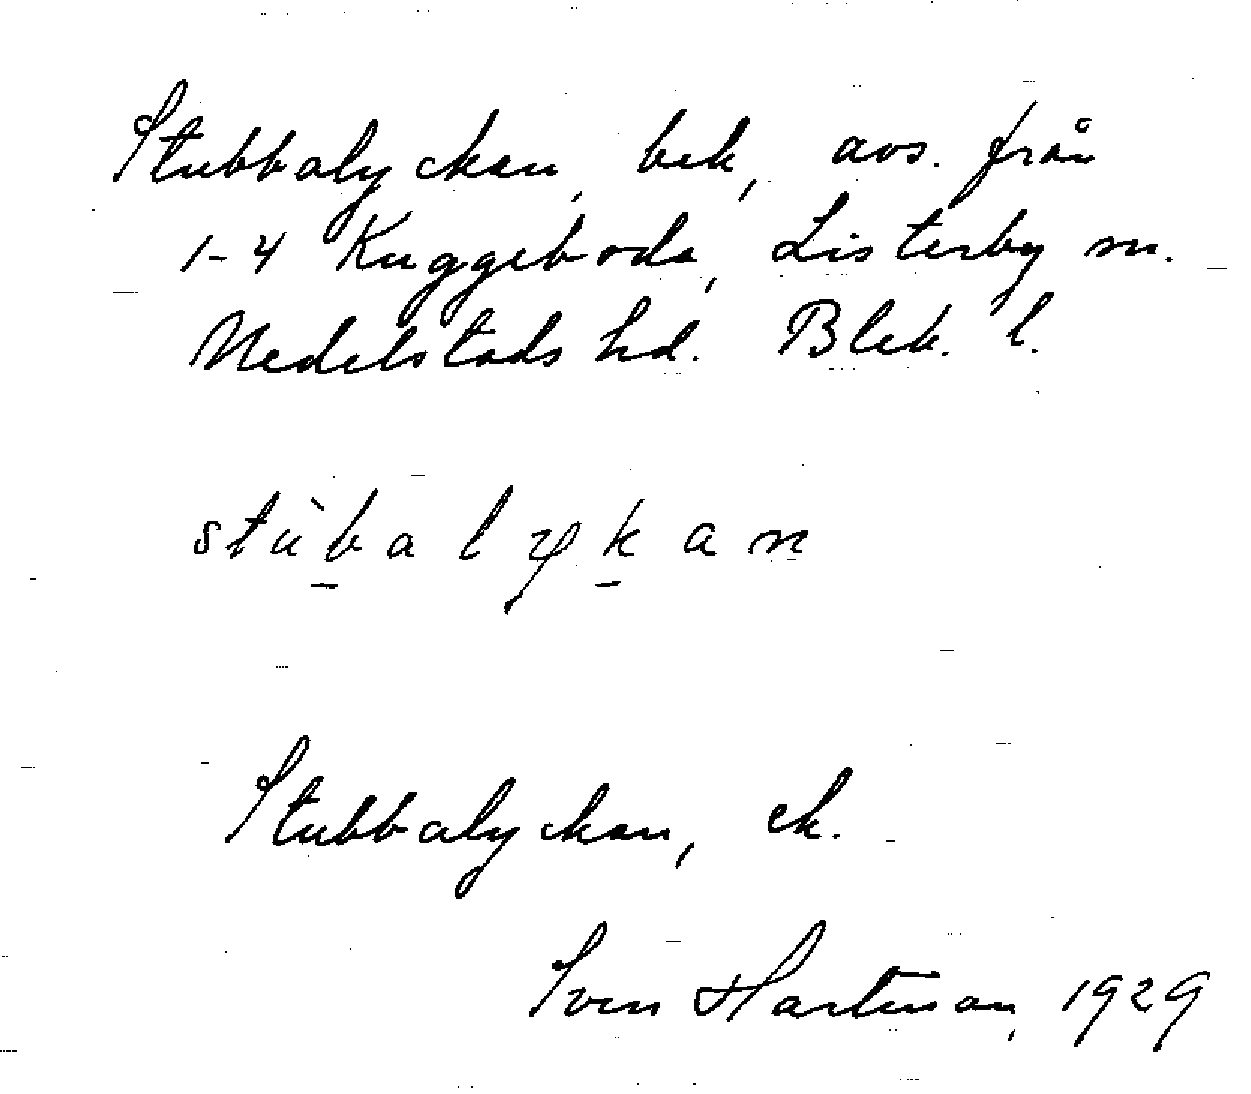 Stubbalyckan, bek, avs. från
1-4 Kuggeboda, Listerby sn.
Medelstads hd. Blek. l.
stùb̲alyk̲an
Stubbalyckan, ek.
Sven Hartman, 1929